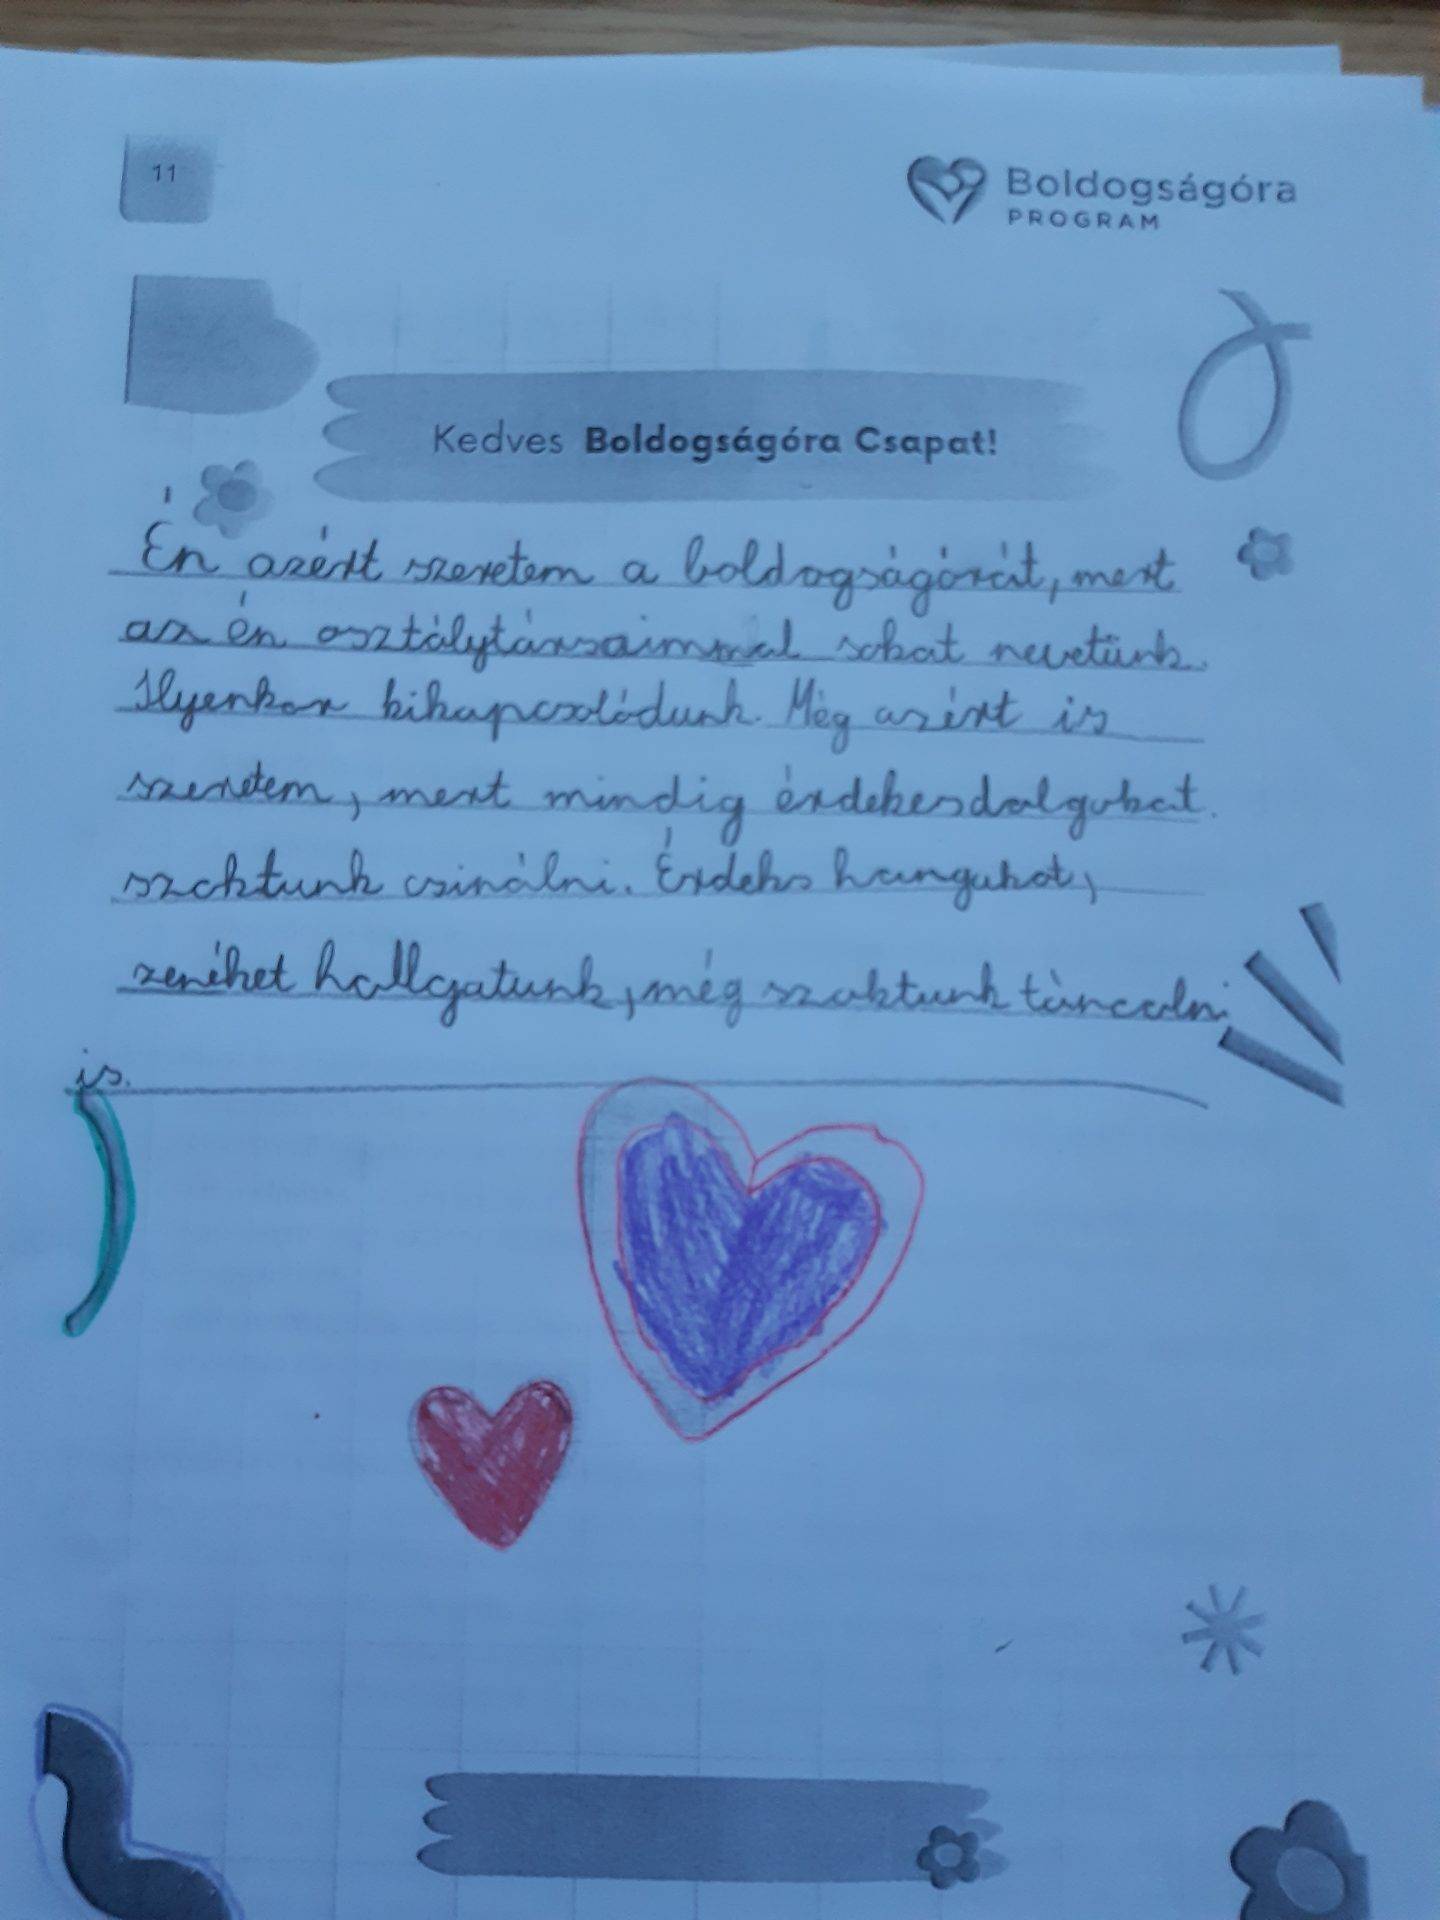 11
Boldogságóra
PROGRAM
Kedves Boldogságóra Csapat!
Én azért szeretem a boldogságórát, mert
az én osztálytársaimmal sokat nevetünk.
Ilyenkor kikapcsolódunk. Még azért is
szeretem, mert mindig érdekesdolgokat.
szoktunk csinálni. Érdeks hangokot,
zenéket hallgatunk, még szoktunk táncolni
is.